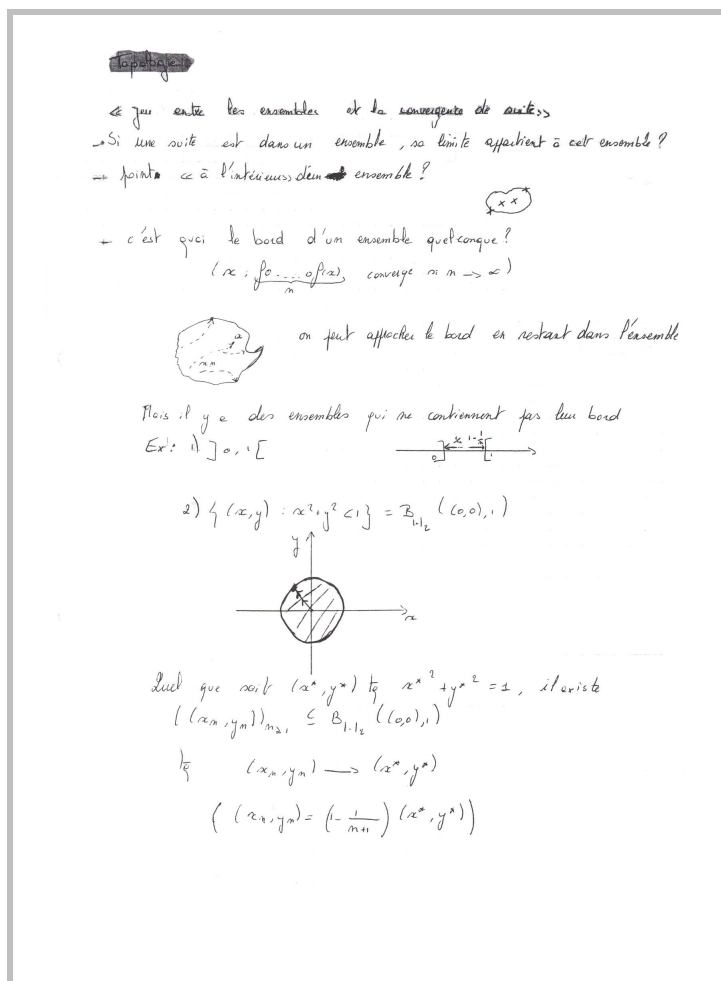 Topologie
« jeu entre les ensembles et la convergence de suite »
→ Si une suite est dans un ensemble, sa limite appartient à cet ensemble ?
→ point « à l'intérieur » d'un ensemble ?
→ c'est quoi le bord d'un ensemble quelconque ?
(x : fo.....of(x), converge si n → ∞)
n
on peut approcher le bord en restant dans l'ensemble
Mais il y a des ensembles qui ne contiennent pas leur bord
Ex : 1) ]0,1[
0 1/n 1-1/n 1
2) {(x,y) : x²+y² < 1} = B_{|.|_2}((0,0),1)
y
x
Quel que soit (x*,y*) tq x*² + y*² = 1, il existe
((x_n,y_n))_{n≥1} ⊆ B_{|.|_2}((0,0),1)
tq (x_n,y_n) → (x*,y*)
((x_n,y_n) = (1 - 1/(n+1)) (x*,y*))